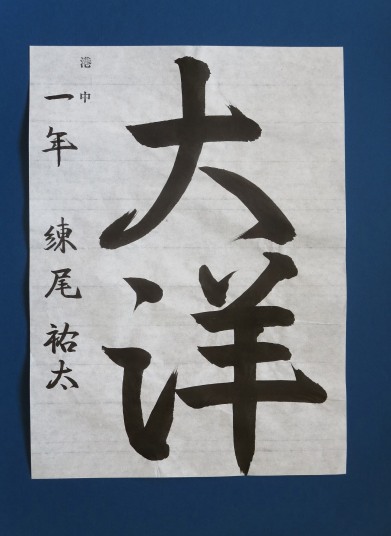 大洋
港中
一年 練尾祐太